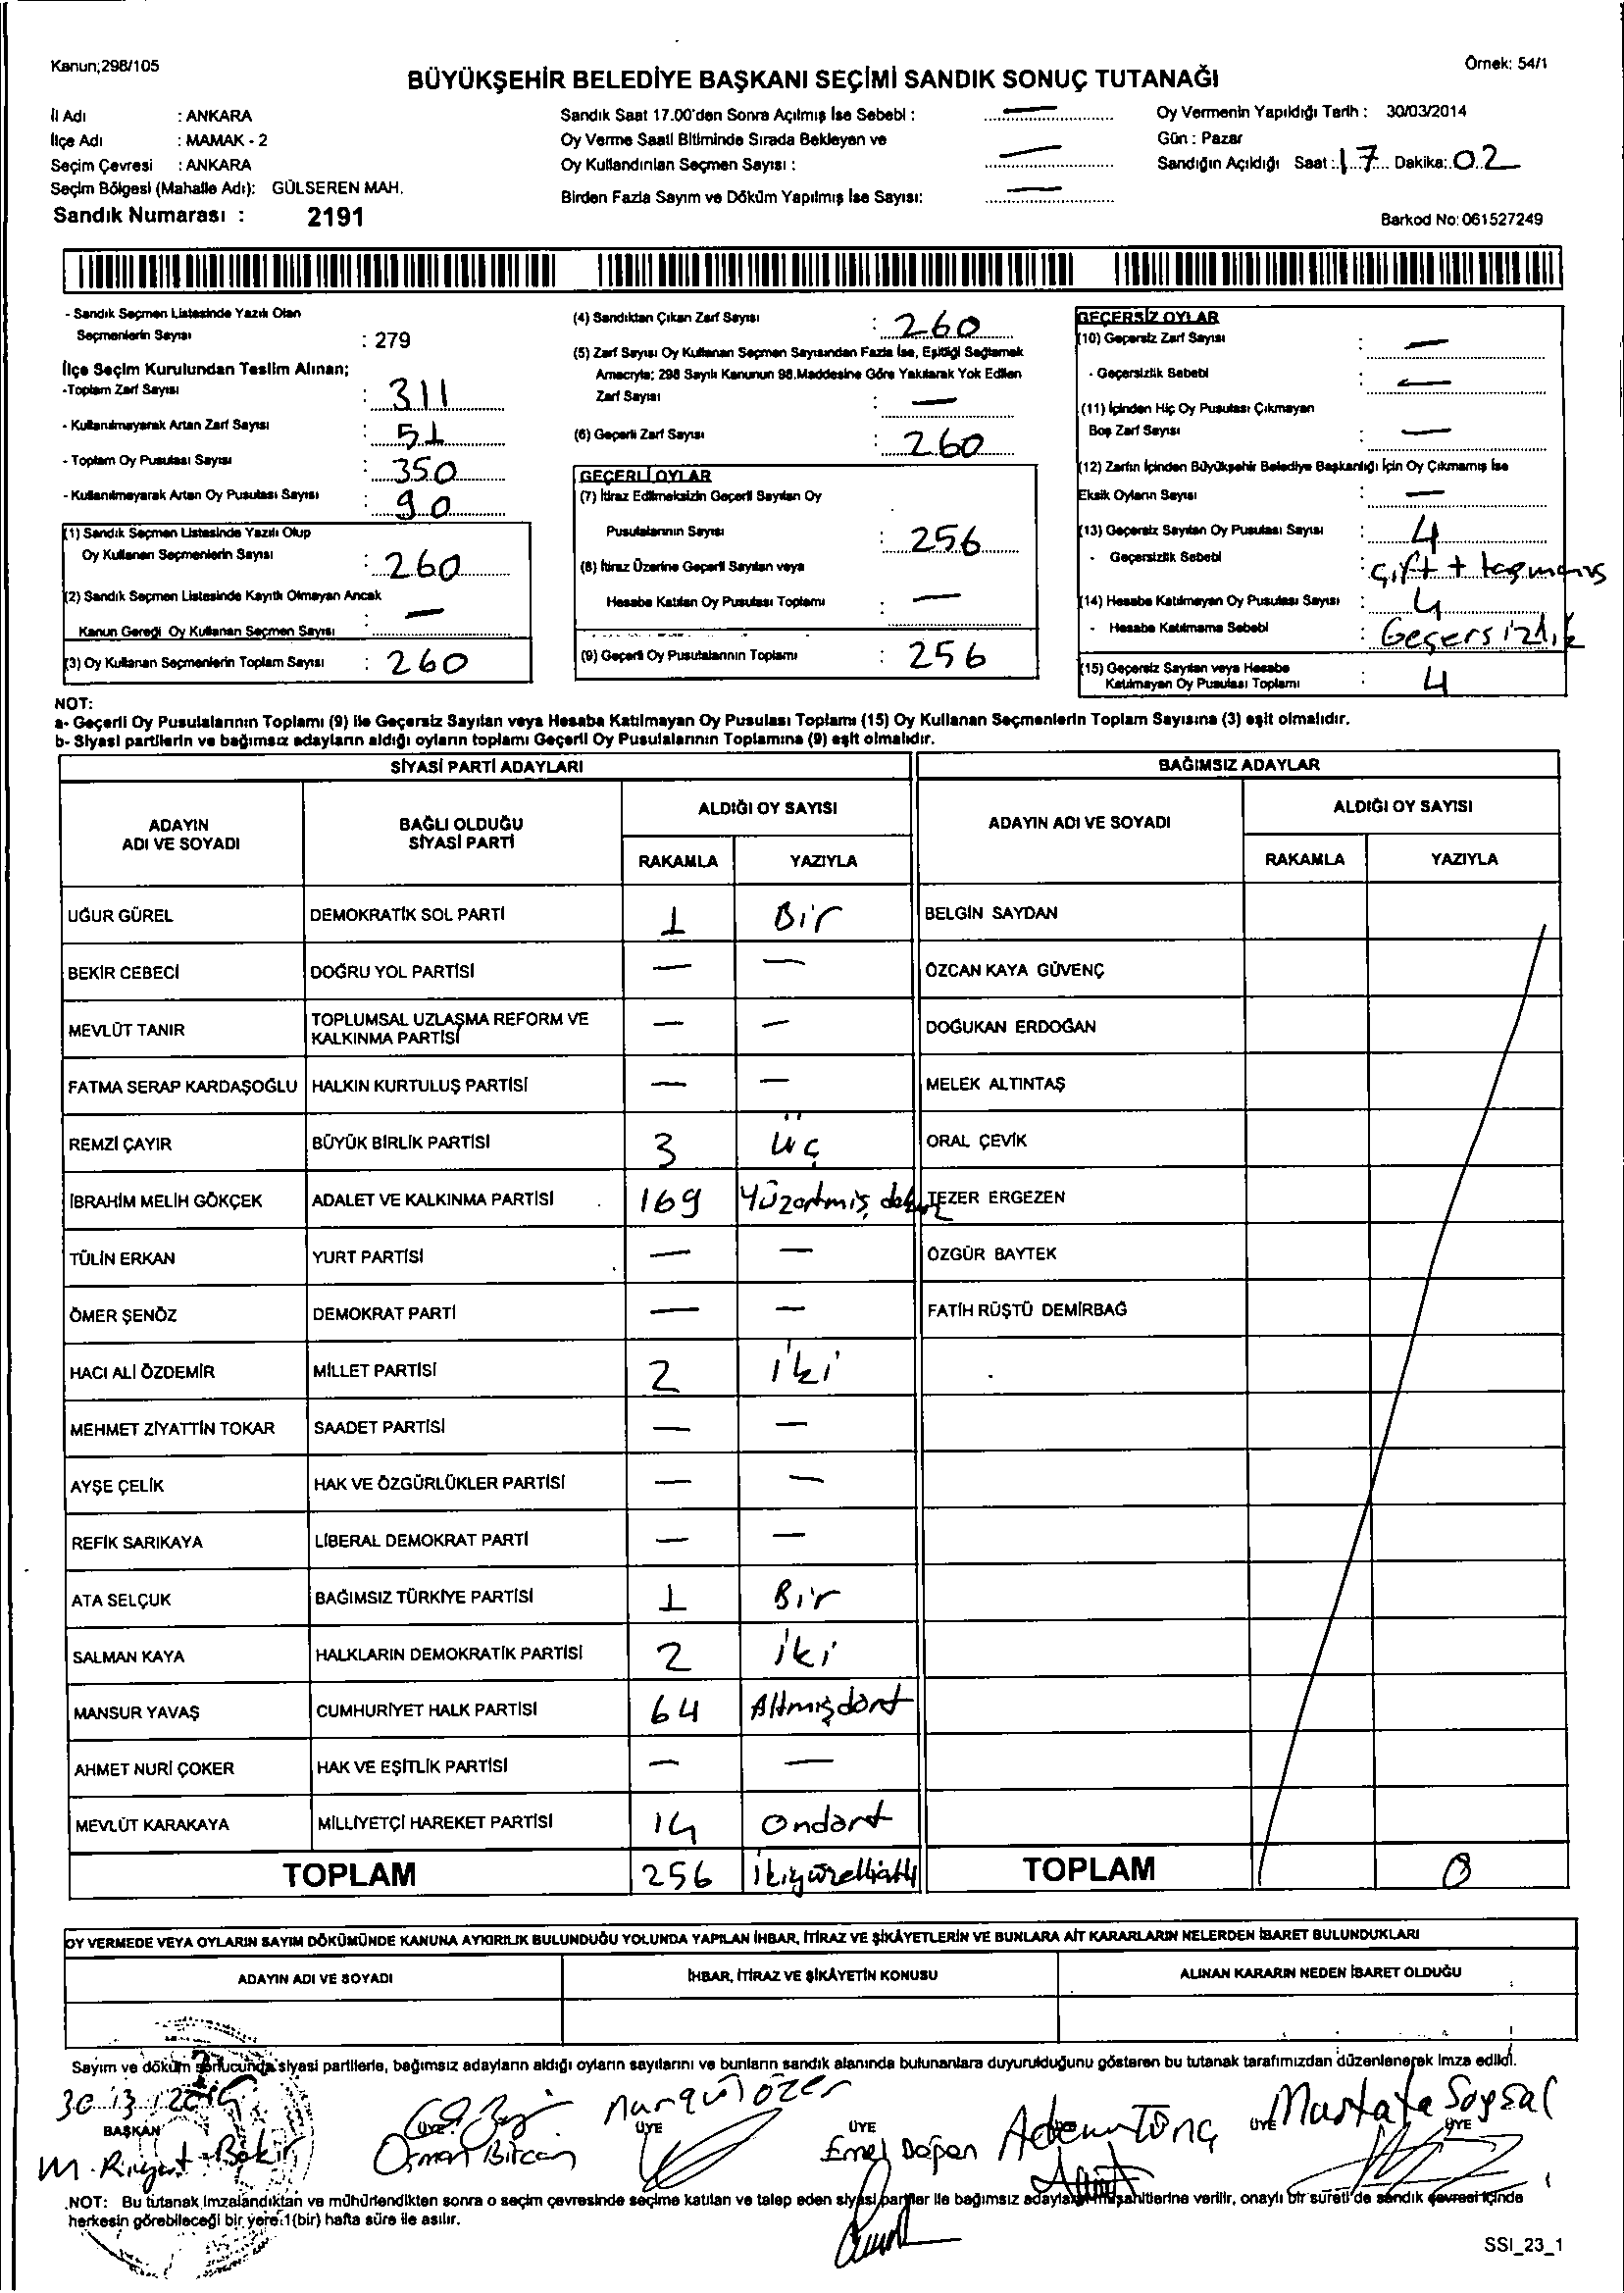 Kanun;298/105
Örnek: 54/1
BÜYÜKŞEHİR BELEDİYE BAŞKANI SEÇİMİ SANDIK SONUÇ TUTANAĞI
İl Adı : ANKARA
İlçe Adı : MAMAK - 2
Seçim Çevresi : ANKARA
Seçim Bölgesi (Mahalle Adı): GÜLSEREN MAH.
Sandık Numarası : 2191
Sandık Saat 17.00'den Sonra Açılmış İse Sebebi : —
Oy Verme Saati Bitiminde Sırada Bekleyen ve
Oy Kullandırılan Seçmen Sayısı : —
Birden Fazla Sayım ve Döküm Yapılmış İse Sayısı: —
Oy Vermenin Yapıldığı Tarih : 30/03/2014
Gün : Pazar
Sandığın Açıldığı Saat : 17 Dakika: 02
Barkod No: 061527249
- Sandık Seçmen Listesinde Yazılı Olan
Seçmenlerin Sayısı : 279
İlçe Seçim Kurulundan Teslim Alınan;
-Toplam Zarf Sayısı : 311
- Kullanılmayarak Artan Zarf Sayısı : 51
- Toplam Oy Pusulası Sayısı : 350
- Kullanılmayarak Artan Oy Pusulası Sayısı : 90
(1) Sandık Seçmen Listesinde Yazılı Olup
Oy Kullanan Seçmenlerin Sayısı : 260
(2) Sandık Seçmen Listesinde Kayıtlı Olmayan Ancak
Kanun Gereği Oy Kullanan Seçmen Sayısı : —
(3) Oy Kullanan Seçmenlerin Toplam Sayısı : 260
(4) Sandıktan Çıkan Zarf Sayısı : 260
(5) Zarf Sayısı Oy Kullanan Seçmen Sayısından Fazla İse, Eşitliği Sağlamak
Amacıyla; 298 Sayılı Kanunun 98.Maddesine Göre Yakılarak Yok Edilen
Zarf Sayısı : —
(6) Geçerli Zarf Sayısı : 260
GEÇERLİ OYLAR
(7) İtiraz Edilmeksizin Geçerli Sayılan Oy
Pusulalarının Sayısı : 256
(8) İtiraz Üzerine Geçerli Sayılan veya
Hesaba Katılan Oy Pusulası Toplamı : —
(9) Geçerli Oy Pusulalarının Toplamı : 256
GEÇERSİZ OYLAR
(10) Geçersiz Zarf Sayısı : —
- Geçersizlik Sebebi : —
(11) İçinden Hiç Oy Pusulası Çıkmayan
Boş Zarf Sayısı : —
(12) Zarfın İçinden Büyükşehir Belediye Başkanlığı İçin Oy Çıkmamış İse
Eksik Oyların Sayısı : —
(13) Geçersiz Sayılan Oy Pusulası Sayısı : 4
- Geçersizlik Sebebi : çift + taşmanış
(14) Hesaba Katılmayan Oy Pusulası Sayısı : 4
- Hesaba Katılmama Sebebi : Geçersizlik
(15) Geçersiz Sayılan veya Hesaba
Katılmayan Oy Pusulası Toplamı : 4
NOT:
a- Geçerli Oy Pusulalarının Toplamı (9) ile Geçersiz Sayılan veya Hesaba Katılmayan Oy Pusulası Toplamı (15) Oy Kullanan Seçmenlerin Toplam Sayısına (3) eşit olmalıdır.
b- Siyasi partilerin ve bağımsız adayların aldığı oyların toplamı Geçerli Oy Pusulalarının Toplamına (9) eşit olmalıdır.
SİYASİ PARTİ ADAYLARI BAĞIMSIZ ADAYLAR
ADAYIN ADI VE SOYADI BAĞLI OLDUĞU SİYASİ PARTİ ALDIĞI OY SAYISI RAKAMLA YAZIYLA
ADAYIN ADI VE SOYADI ALDIĞI OY SAYISI RAKAMLA YAZIYLA
UĞUR GÜREL DEMOKRATİK SOL PARTİ 1 Bir BELGİN SAYDAN
BEKİR CEBECİ DOĞRU YOL PARTİSİ — — ÖZCAN KAYA GÜVENÇ
MEVLÜT TANIR TOPLUMSAL UZLAŞMA REFORM VE KALKINMA PARTİSİ — — DOĞUKAN ERDOĞAN
FATMA SERAP KARDAŞOĞLU HALKIN KURTULUŞ PARTİSİ — — MELEK ALTINTAŞ
REMZİ ÇAYIR BÜYÜK BİRLİK PARTİSİ 3 üç ORAL ÇEVİK
İBRAHİM MELİH GÖKÇEK ADALET VE KALKINMA PARTİSİ 169 TEZER ERGEZEN
TÜLİN ERKAN YURT PARTİSİ — — ÖZGÜR BAYTEK
ÖMER ŞENÖZ DEMOKRAT PARTİ — — FATİH RÜŞTÜ DEMİRBAĞ
HACI ALİ ÖZDEMİR MİLLET PARTİSİ 2 iki
MEHMET ZİYATTİN TOKAR SAADET PARTİSİ — —
AYŞE ÇELİK HAK VE ÖZGÜRLÜKLER PARTİSİ — —
REFİK SARIKAYA LİBERAL DEMOKRAT PARTİ — —
ATA SELÇUK BAĞIMSIZ TÜRKİYE PARTİSİ 1 Bir
SALMAN KAYA HALKLARIN DEMOKRATİK PARTİSİ 2 iki
MANSUR YAVAŞ CUMHURİYET HALK PARTİSİ 64 Altmışdört
AHMET NURİ ÇOKER HAK VE EŞİTLİK PARTİSİ — —
MEVLÜT KARAKAYA MİLLİYETÇİ HAREKET PARTİSİ 14 Ondört
TOPLAM 256 ikiyüzelliatlı TOPLAM 0
OY VERMEDE VEYA OYLARIN SAYIM DÖKÜMÜNDE KANUNA AYKIRILIK BULUNDUĞU YOLUNDA YAPILAN İHBAR, İTİRAZ VE ŞİKÂYETLERİN VE BUNLARA AİT KARARLARIN NELERDEN İBARET BULUNDUKLARI
ADAYIN ADI VE SOYADI İHBAR, İTİRAZ VE ŞİKÂYETİN KONUSU ALINAN KARARIN NEDEN İBARET OLDUĞU
Sayım ve döküm sonucunda siyasi partilerle, bağımsız adayların aldığı oyların sayılarını ve bunların sandık alanında bulunanlara duyurulduğunu gösteren bu tutanak tarafımızdan düzenlenerek imza edildi.
30/3/2014
BAŞKAN ÜYE ÜYE ÜYE ÜYE ÜYE
Nurgül özer Adem Tunç Mustafa Soysal
Osman Bircan Emel Doğan
NOT: Bu tutanak imzalandıktan ve mühürlendikten sonra o seçim çevresinde seçime katılan ve talep eden siyasi partiler ile bağımsız adayların müşahitlerine verilir, onaylı bir sureti de sandık çevresi içinde
herkesin görebileceği bir yere 1(bir) hafta süre ile asılır.
SSI_23_1